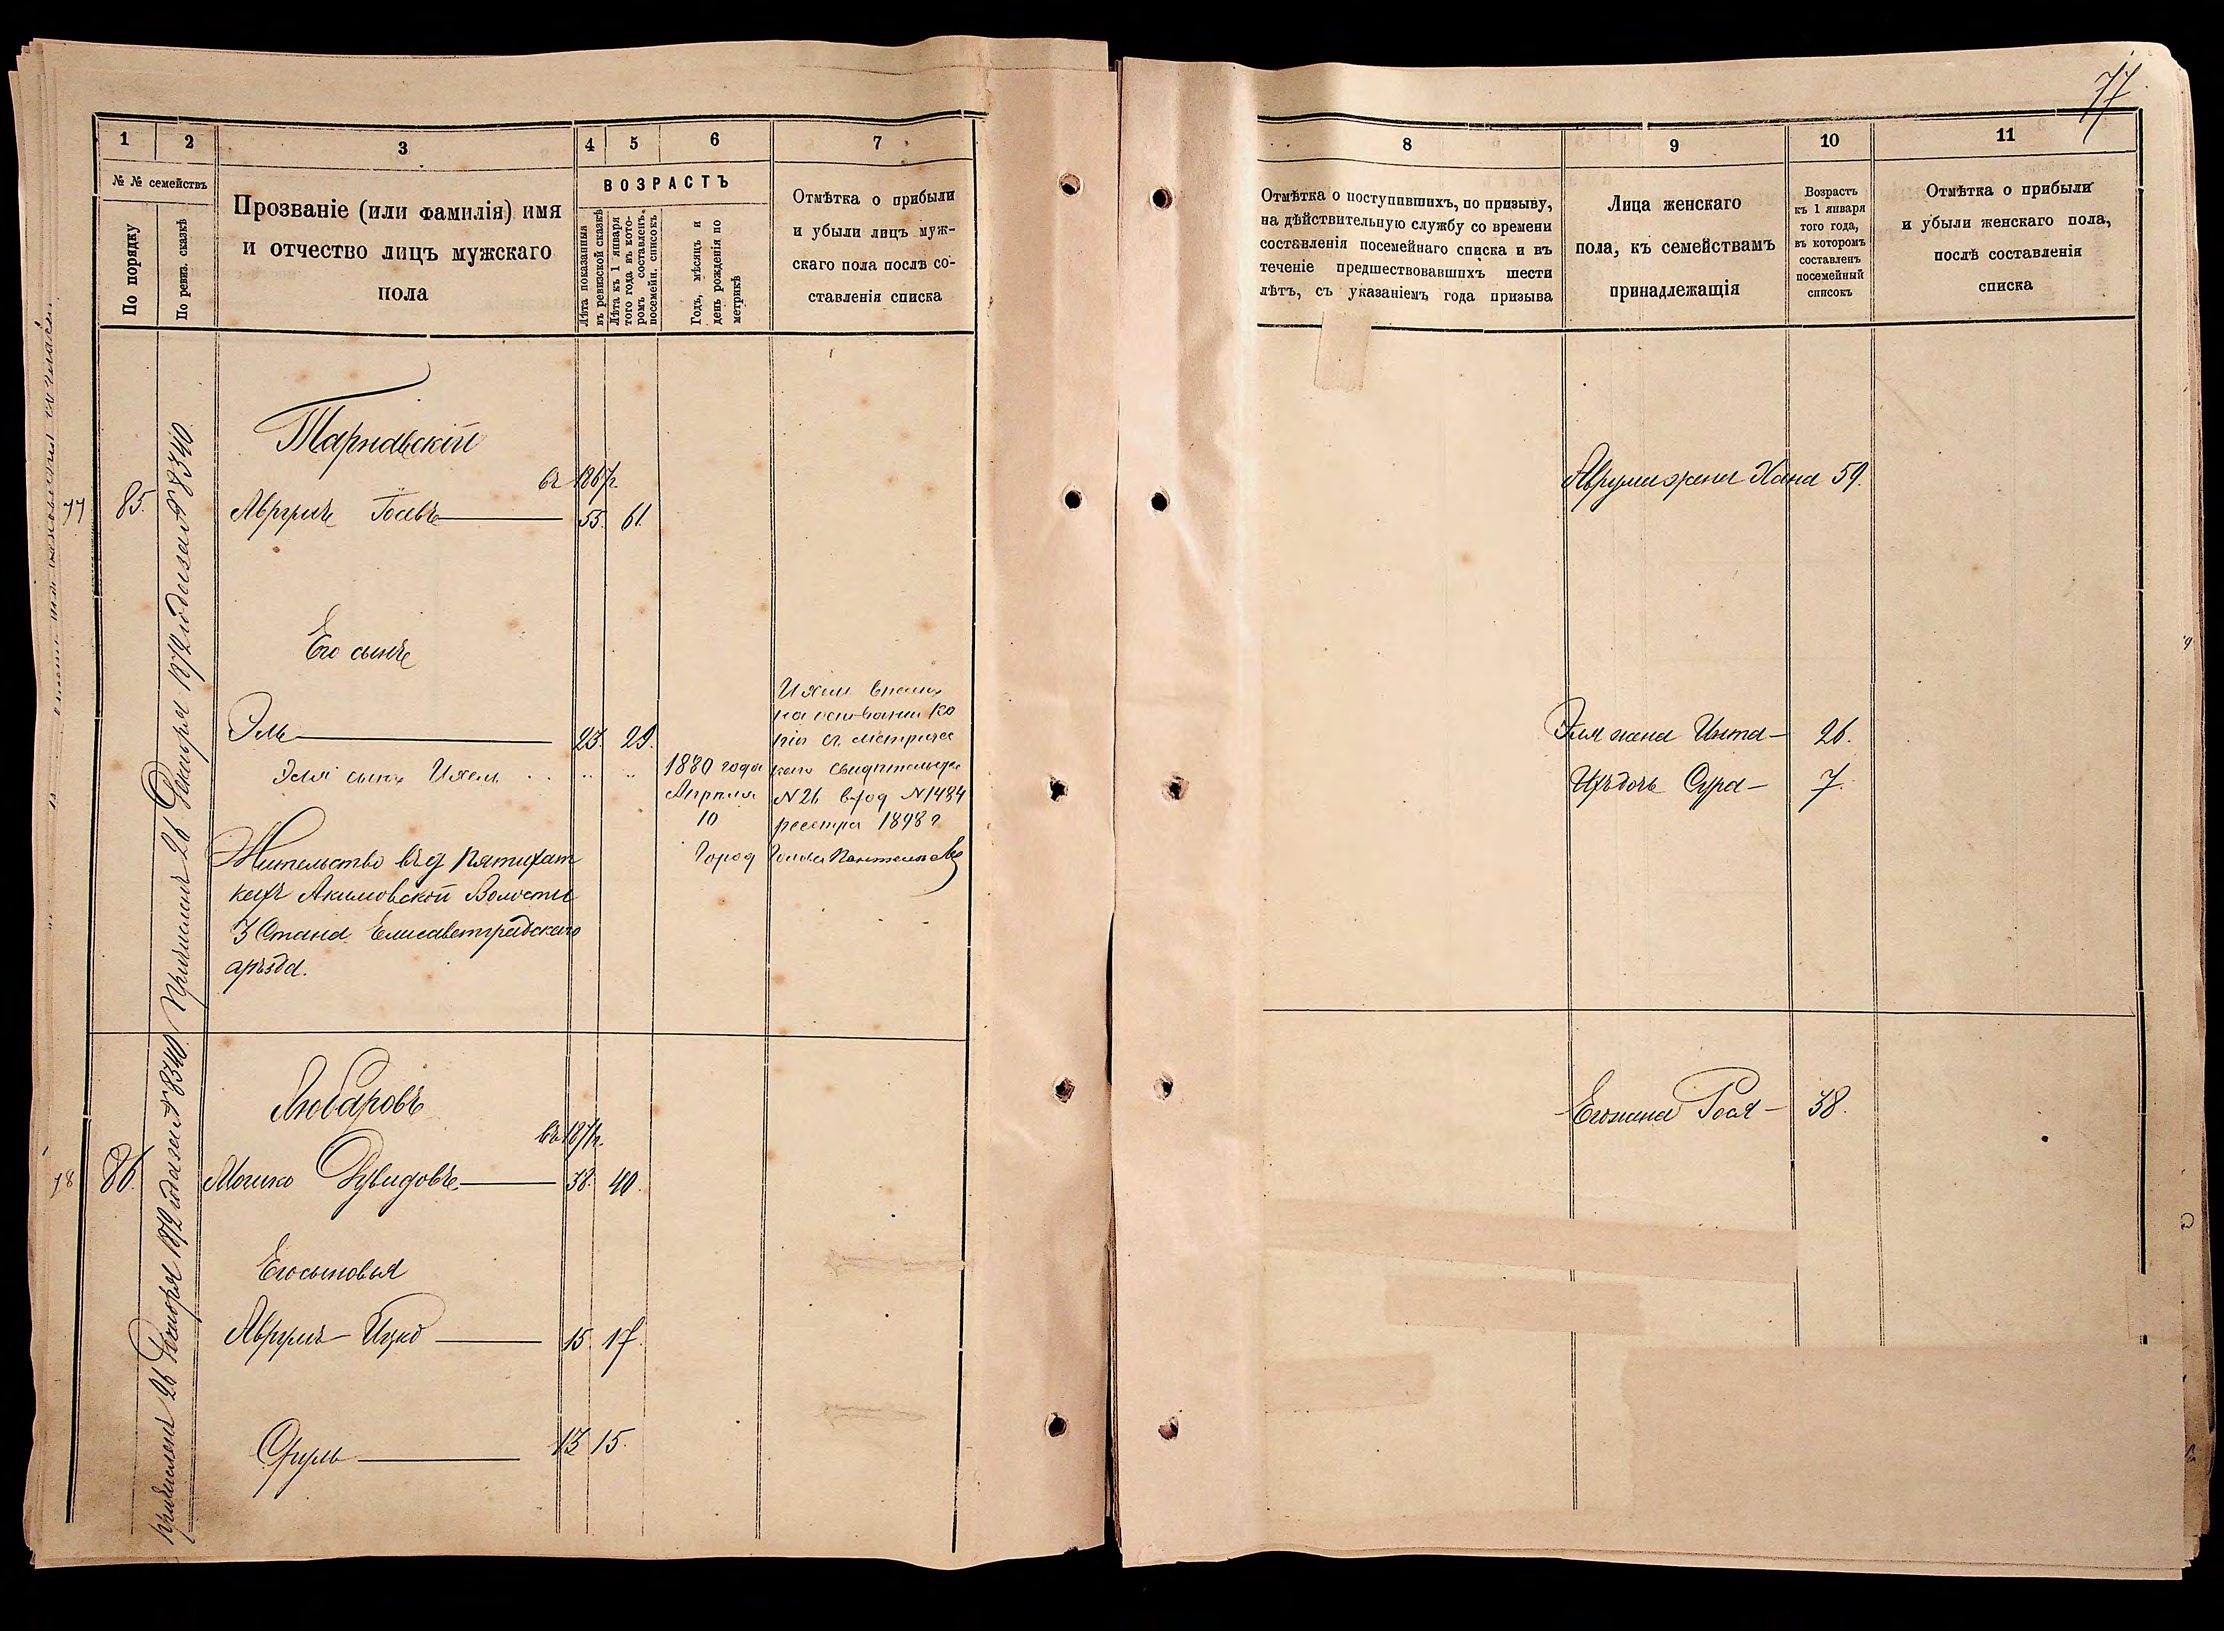 77
1
2
3
4
5
6
7
№ № семействъ
По порядку
По ревиз. сказкѣ
Прозваніе (или фамилія) имя
и отчество лицъ мужскаго
пола
ВОЗРАСТЪ
Лѣта показанныя
въ ревизской сказкѣ
Лѣта къ 1 января
того года въ кото-
ромъ составленъ
посемейн. списокъ
Годъ, мѣсяцъ и
день рожденія по
метрикѣ
Отмѣтка о прибыли
и убыли лицъ муж-
скаго пола послѣ со-
ставленія списка
8
9
10
11
Отмѣтка о поступившихъ, по призыву,
на дѣйствительную службу со времени
составленія посемейнаго списка и въ
теченіе предшествовавшихъ шести
лѣтъ, съ указаніемъ года призыва
Лица женскаго
пола, къ семействамъ
принадлежащія
Возрастъ
къ 1 января
того года,
въ которомъ
составленъ
посемейный
списокъ
Отмѣтка о прибыли
и убыли женскаго пола,
послѣ составленія
списка
Тарнавскій
въ 1867 г.
77 85. Аврумъ Іосевъ 55. 61.
Аврума жена Хана 59.
Причисленъ 26 Декабря 1872 года за № 8340
Его сынъ
Эль 23. 29.
Эля жена Инта 26.
Эля сынъ Ихель
1880 года
Апрѣля
10
Ихель внесенъ
на основаніи ко
піи съ метричес
каго свидѣтельства
№ 26 вход № 1484
реестра 1898 г
Город Голова
Ихъ дочь Сура 7.
Жительство въ д Пятихат
кахъ Акимовской Волости
3 Стана Елисаветградскаго
уѣзда.
Любаровъ
въ 1871 г.
78 86. Мошко Дувидовъ 38. 40.
Его жена Рося 38.
Причисленъ 26 Декабря 1872 года за № 8340
Его сыновья
Аврумъ-Ицко 15. 17.
Сруль 13 15.